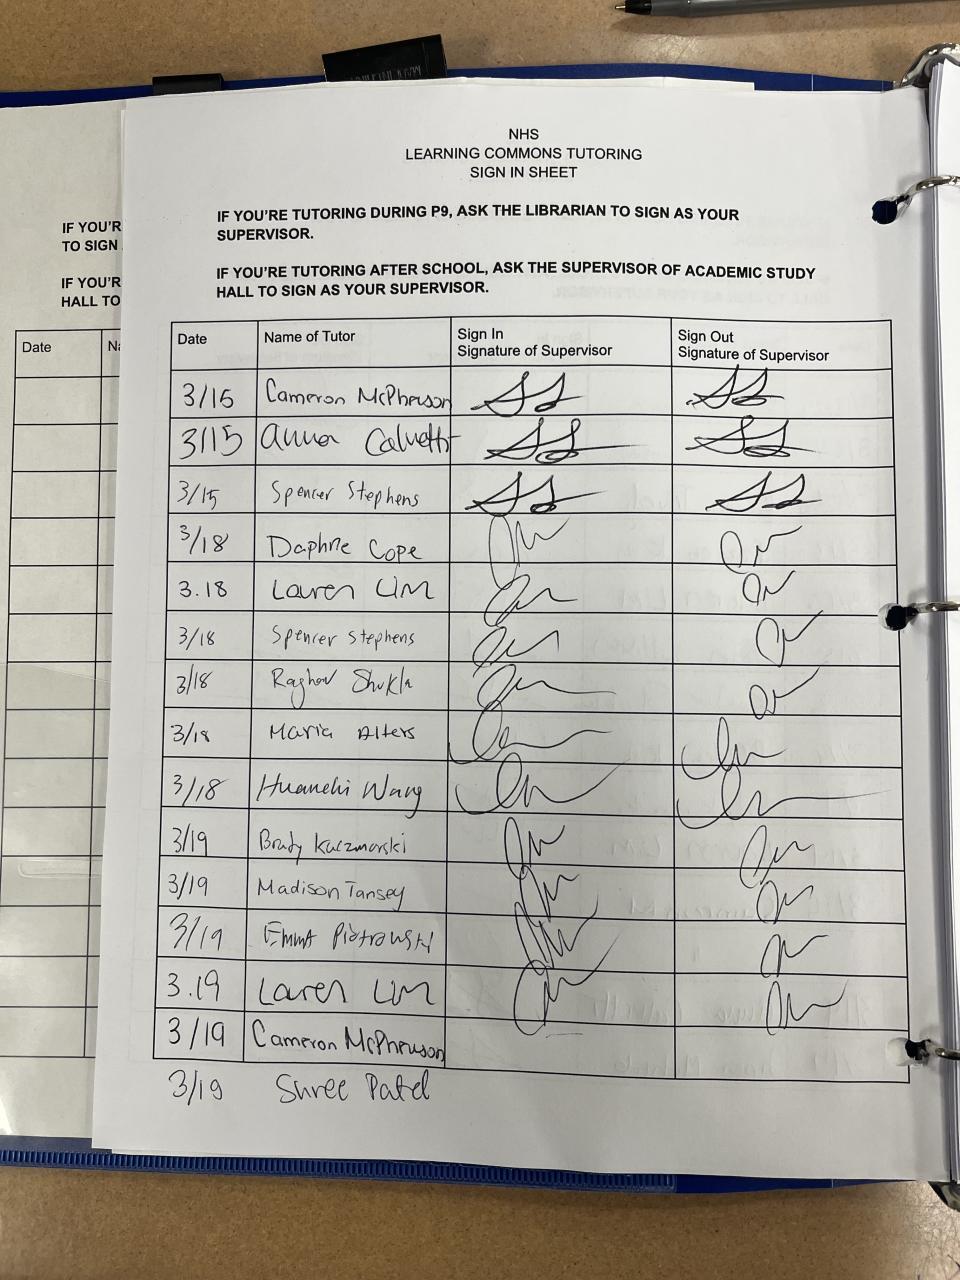 NHS
LEARNING COMMONS TUTORING
SIGN IN SHEET
IF YOU'RE TUTORING DURING P9, ASK THE LIBRARIAN TO SIGN AS YOUR
SUPERVISOR.
IF YOU'RE TUTORING AFTER SCHOOL, ASK THE SUPERVISOR OF ACADEMIC STUDY
HALL TO SIGN AS YOUR SUPERVISOR.
IF YOU'R
TO SIGN
IF YOU'R
HALL TO
Date
Date Name of Tutor Sign In Signature of Supervisor Sign Out Signature of Supervisor
3/15 Cameron McPheuson
3/15 Anna Calvetti
3/15 Spencer Stephens
3/18 Daphne Cope
3.18 Lauren Lim
3/18 Spencer Stephens
3/18 Raghav Shukla
3/18 Maria Alters
3/18 Wang
3/19 Brady Kaczmarski
3/19 Madison Tansey
3/19 Emma Piotrowski
3.19 Lauren Lim
3/19 Cameron McPheuson
3/19 Shree Patel